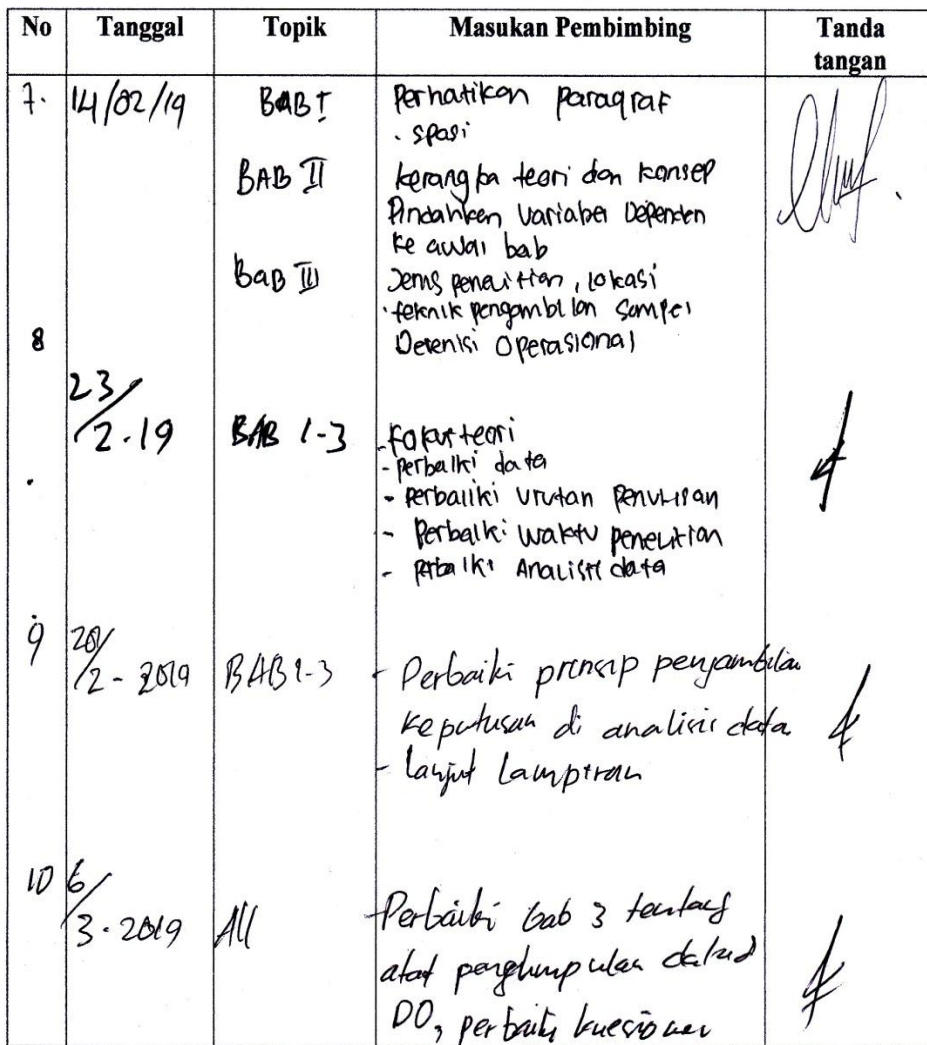 No Tanggal Topik Masukan Pembimbing Tanda tangan
7. 14/02/19 BAB I Perhatikan paragraf
. spasi
BAB II kerangka teori dan konsep
Pindahkan variabel Dependen
ke awal bab
BaB III Jenis penelitian, lokasi
. teknik pengambilan sampel
Devenisi Operasional
8
23/2.19 BAB 1-3 - teori
- perbaiki data
- perbaiiki urutan penulisan
- Perbaiki waktu penelitian
- perbaiki Analisis data
9 /2-2019 BAB 1-3 - Perbaiki prinsip pengambilan
keputusan di analisis data
- lanjut lampiran
10 6/3-2019 All - Perbaiki bab 3 tentang
alat pengumpulan
DO, perbaiki kuesioner